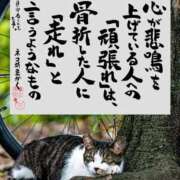 心が悲鳴を
上げている人への
「頑張れ」は、
骨折した人に
「走れ」と
言うようなもの